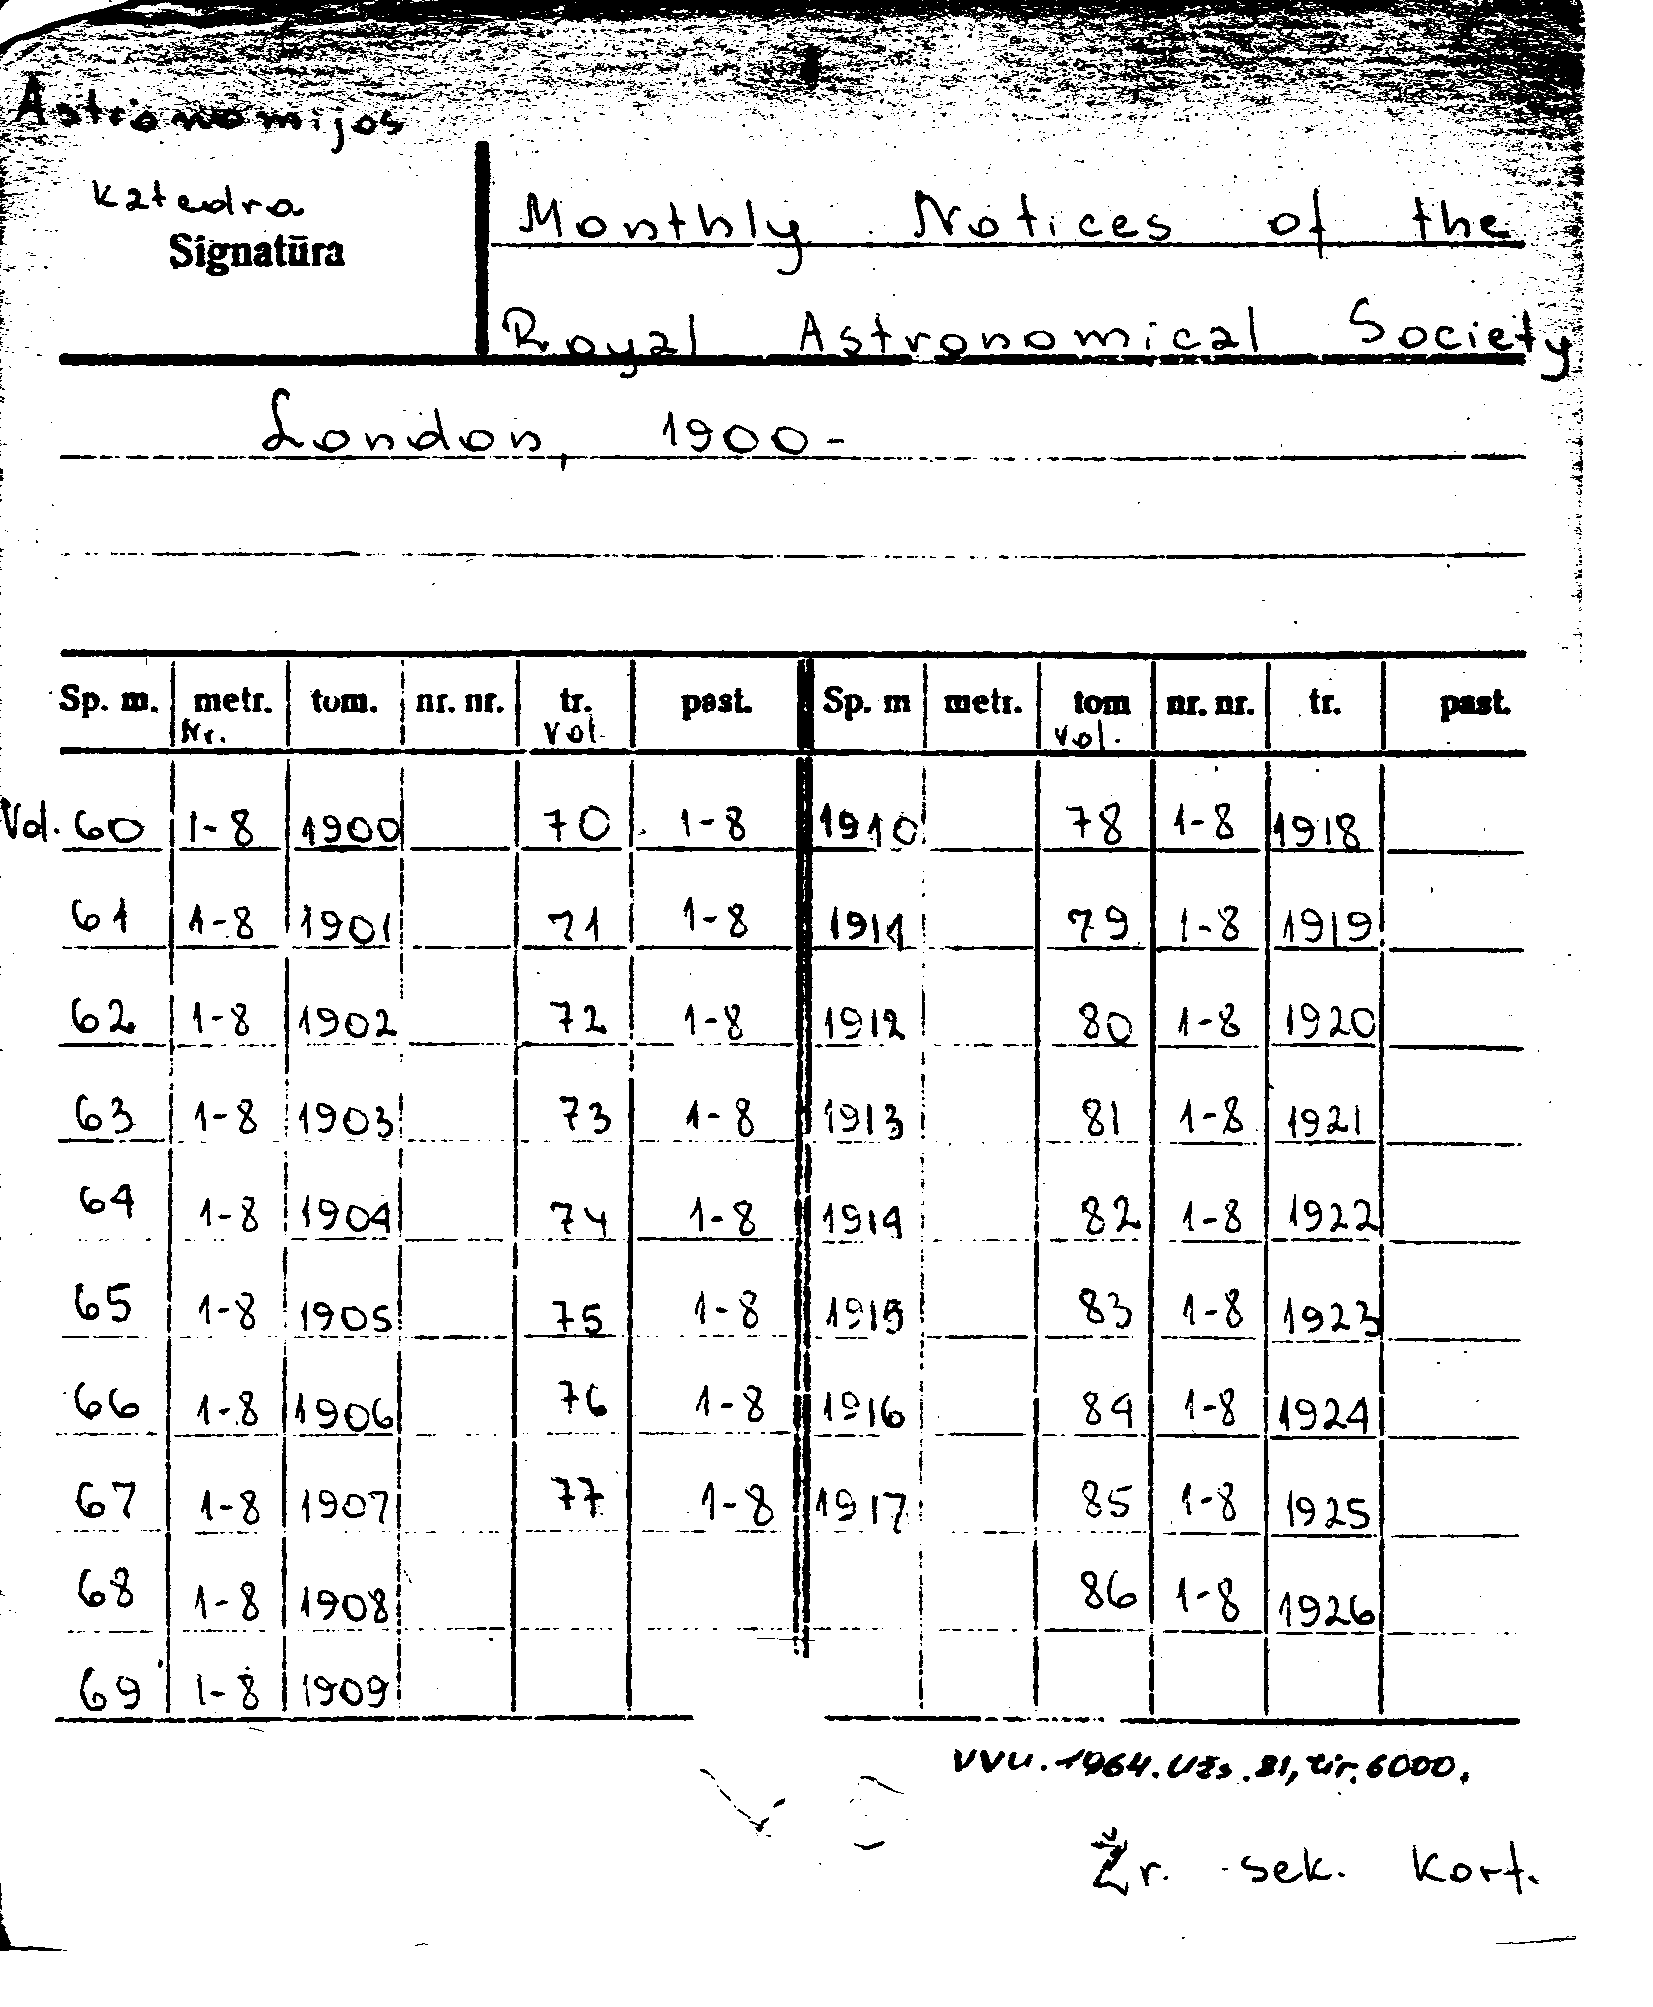 Astronomijos
katedra
Signatūra
Monthly Notices of the
Royal Astronomical Society
London, 1900-
Sp. m. metr. tom. nr. nr. tr. past. Sp. m metr. tom nr. nr. tr. past.
Nr. Vol. vol.
Vol. 60 1-8 1900 70 1-8 1910 78 1-8 1918
61 1-8 1901 71 1-8 1911 79 1-8 1919
62 1-8 1902 72 1-8 1912 80 1-8 1920
63 1-8 1903 73 1-8 1913 81 1-8 1921
64 1-8 1904 74 1-8 1914 82 1-8 1922
65 1-8 1905 75 1-8 1915 83 1-8 1923
66 1-8 1906 76 1-8 1916 84 1-8 1924
67 1-8 1907 77 1-8 1917 85 1-8 1925
68 1-8 1908 86 1-8 1926
69 1-8 1909
VVU. 1964. Užs. 81, tir. 6000.
Žr. sek. kort.